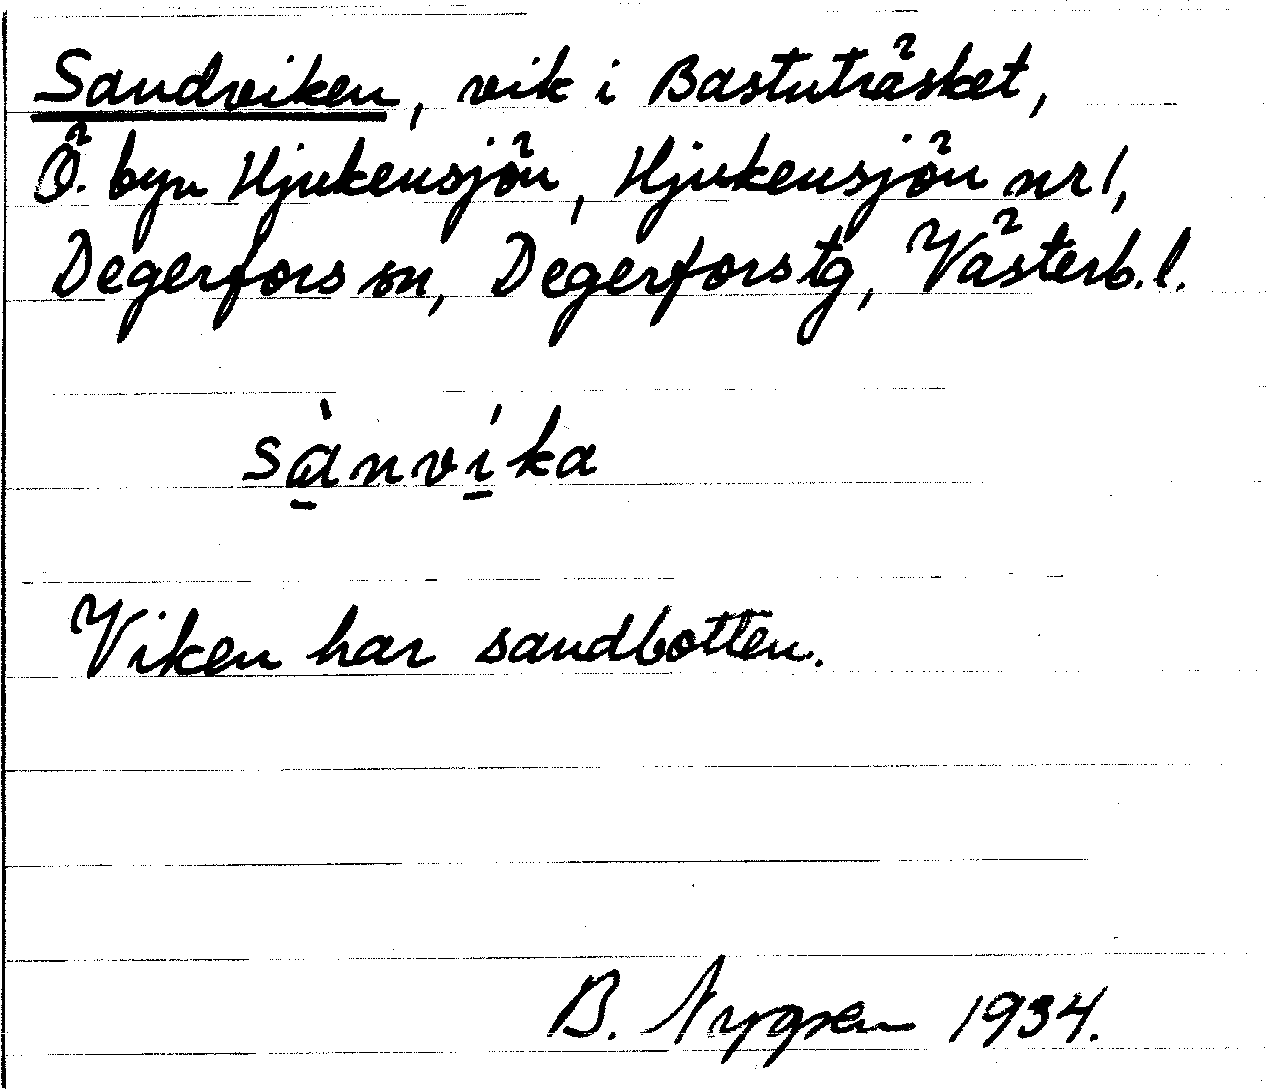 Sandviken, vik i Bastuträsket,
Ö. byn Hjukensjön, Hjukensjön nr 1,
Degerfors sn, Degerfors tg, Västerb. l.
sà̱nví̱ka
Viken har sandbotten.
B. Nygren 1934.